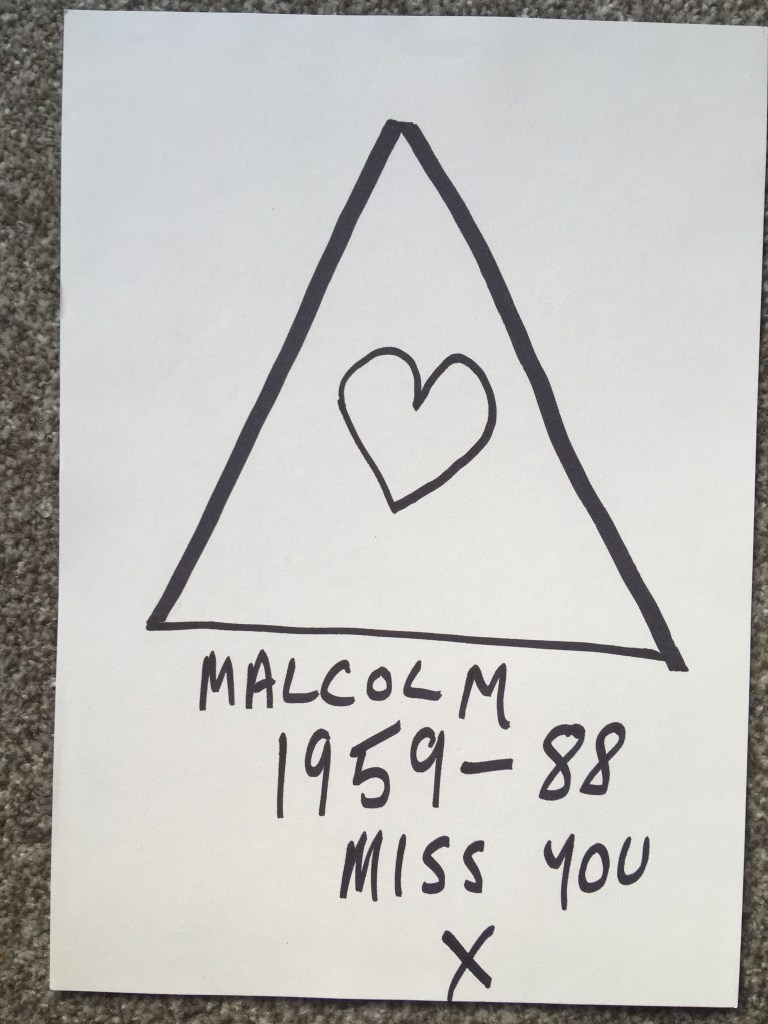 MALCOLM
1959-88
MISS YOU
X